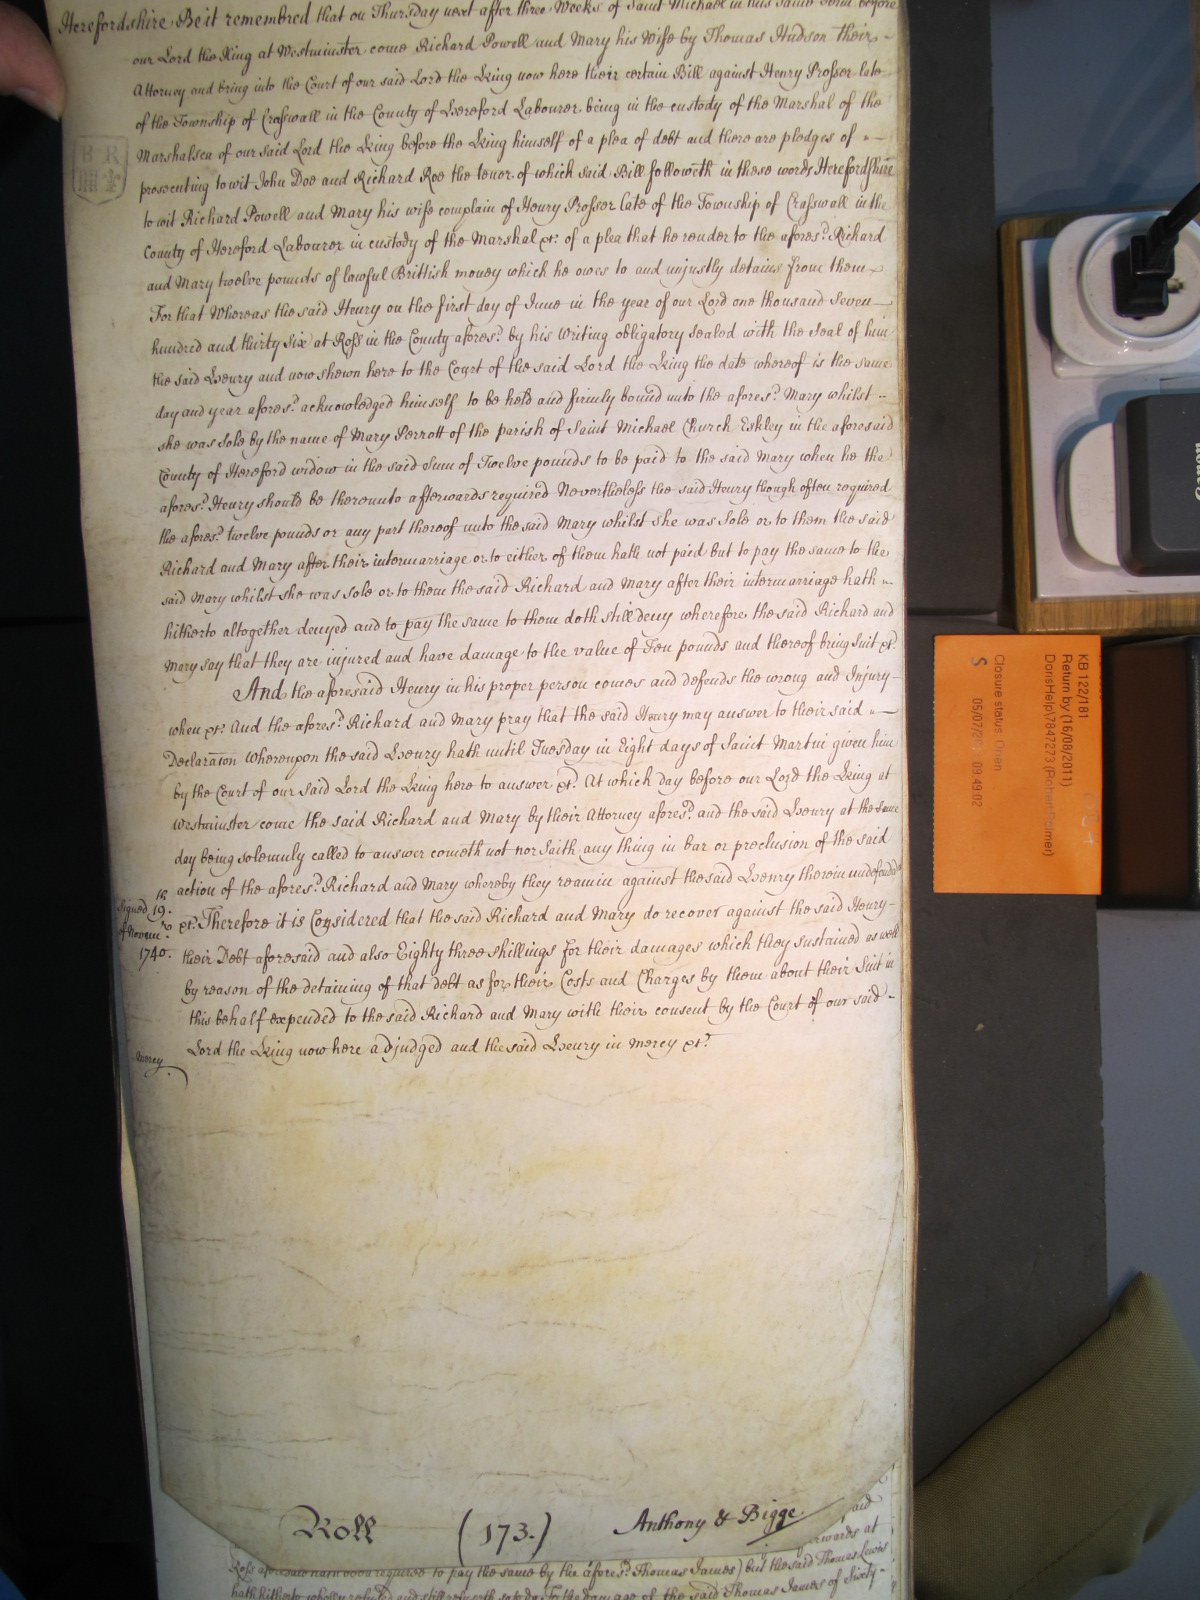 Herefordshire Be it remembered that on Thursday next after three Weeks of Saint Michael in this same before
our Lord the King at Westminster come Richard Powell and Mary his Wife by Thomas Hudson their
Attorney and bring into the Court of our said Lord the King now here their certain Bill against Henry Prosser late
of the Township of Crasswall in the County of Hereford Labourer being in the custody of the Marshal of the
Marshalsea of our said Lord the King before the King himself of a plea of debt and there are pledges of
prosecuting to wit John Doe and Richard Roe the tenor of which said Bill followeth in these words Herefordshire
to wit Richard Powell and Mary his wife complain of Henry Prosser late of the Township of Crasswall in the
County of Hereford Labourer in custody of the Marshal &c: of a plea that he render to the afores:d Richard
and Mary twelve pounds of lawful Brittish money which he owes to and unjustly detains from them
For that Whereas the said Henry on the first day of June in the year of our Lord one thousand Seven
hundred and thirty Six at Ross in the County afores:d by his Writing obligatory Sealed with the Seal of him
the said Henry and now shewn here to the Court of the said Lord the King the date whereof is the same
day and year afores:d acknowledged himself to be held and firmly bound unto the afores:d Mary whilst
she was Sole by the name of Mary Perrott of the parish of Saint Michael Church Eskley in the aforesaid
County of Hereford widow in the said Sum of Twelve pounds to be paid to the said Mary when he the
afores:d Henry should be thereunto afterwards required Nevertheless the said Henry though often required
the afores:d twelve pounds or any part thereof unto the said Mary whilst she was Sole or to them the said
Richard and Mary after their intermarriage or to either of them hath not paid but to pay the same to the
said Mary whilst she was Sole or to them the said Richard and Mary after their intermarriage hath
hitherto altogether denyed and to pay the same to them doth still deny wherefore the said Richard and
Mary say that they are injured and have damage to the value of Ten pounds and thereof bring Suit &c:
And the aforesaid Henry in his proper person comes and defends the wrong and Injury
when &c: And the afores:d Richard and Mary pray that the said Henry may answer to their said
Declaraton Whereupon the said Henry hath until Tuesday in Eight days of Saint Martin given him
by the Court of our said Lord the King here to answer &c: At which day before our Lord the King at
Westminster come the said Richard and Mary by their Attorney afores:d and the said Henry at the same
day being solemnly called to answer cometh not nor Saith any thing in bar or preclusion of the said
action of the afores:d Richard and Mary whereby they remain against the said Henry therein undefended
Signed 19th
of Novem:r
1740.
&c: Therefore it is Considered that the said Richard and Mary do recover against the said Henry
their Debt aforesaid and also Eighty three shillings for their damages which they sustained as well
by reason of the detaining of that debt as for their Costs and Charges by them about their Suit in
this behalf expended to the said Richard and Mary with their consent by the Court of our said
Lord the King now here adjudged and the said Henry in mercy &c:
Mercy
Roll (173.) Anthony & Bigge
aid
rwards at
Ross required to pay the same by the afores:d Thomas James) but the said Thomas Lewis
hath hitherto wholly refused and still To the damage of the said Thomas James of Sixty
KB 122/181
Return by (16/08/2011)
DorisHelp\7847273 (Robert Palmer)
Closure status: Open
S 05/07/20 09:49:02
Canon